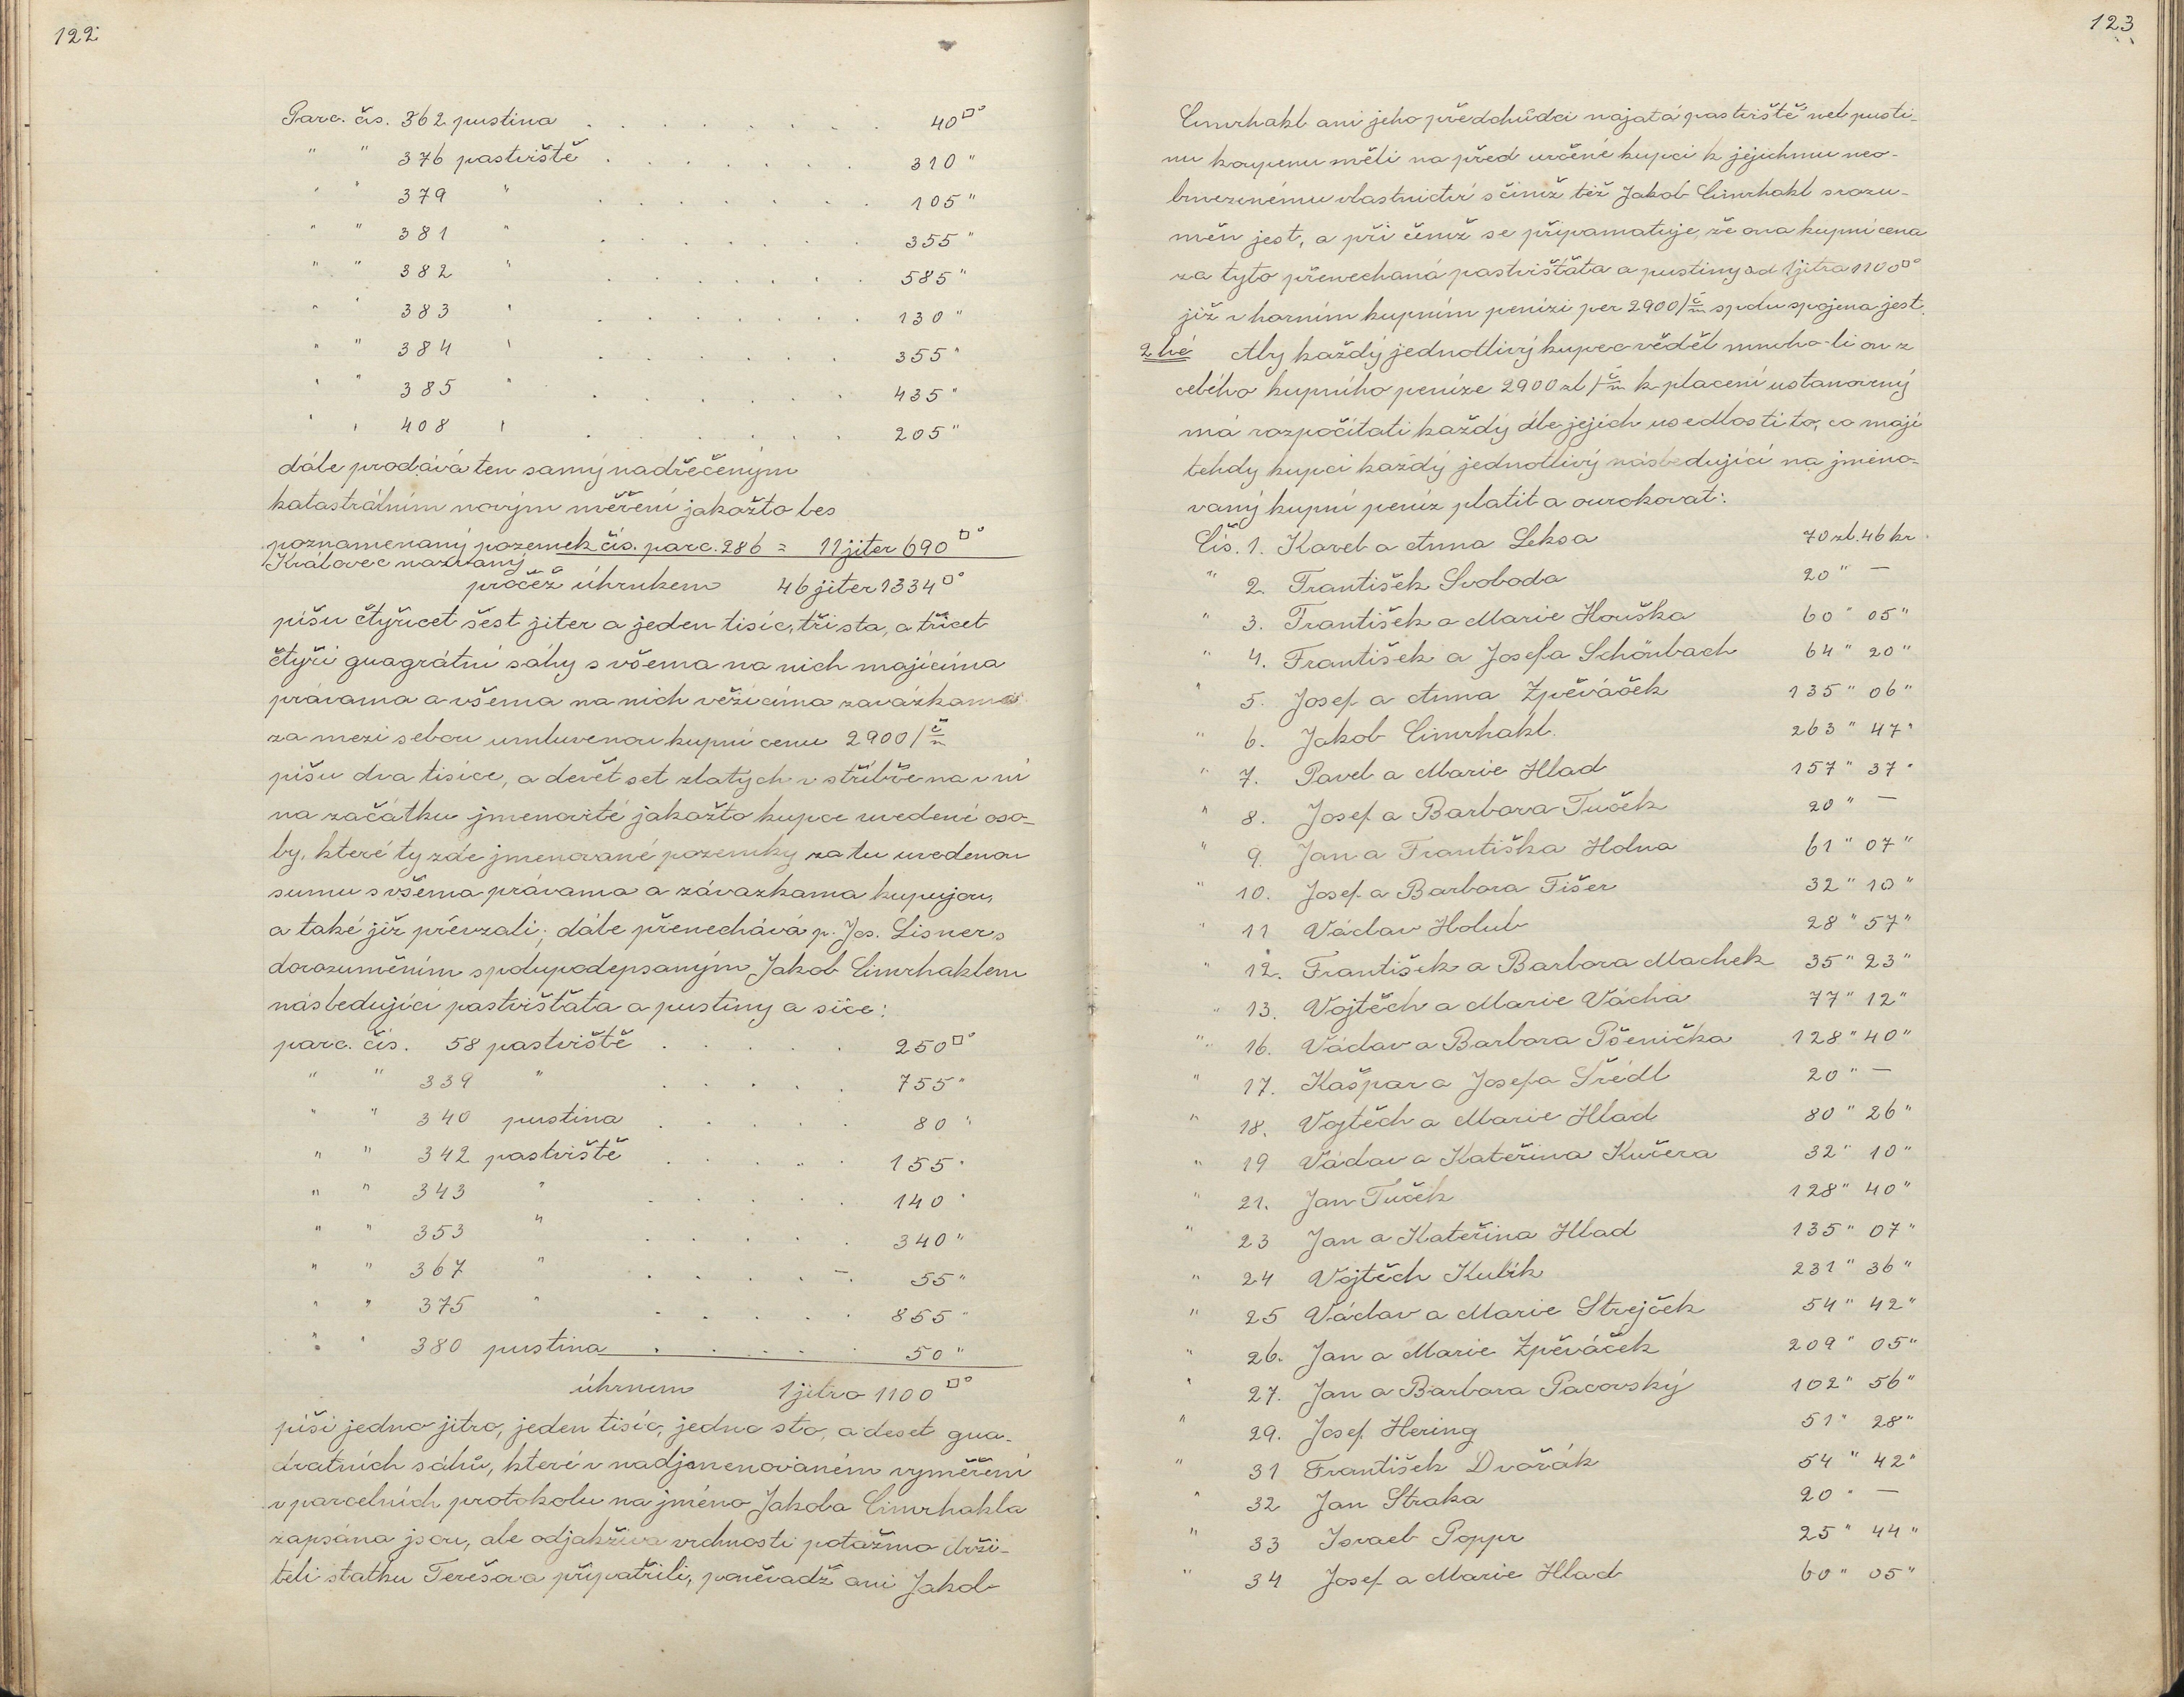 122
Parc. čís. 362 pustina . . . . . . . . 40□°
" " 376 pastviště . . . . . . . 310 "
" " 379 " . . . . . . . 105 "
" " 381 " . . . . . . . 355 "
" " 382 " . . . . . . 585 "
" " 383 " . . . . . . . 130 "
" " 384 " . . . . . . 355 "
" " 385 " . . . . . . 435 "
" " 408 " . . . . . . 205 "
dále prodává ten samý nadřečeným
katastrálním novým měření jakožto les
poznamenaný pozemek čís. parc. 286 = 11 jiter 690□°
Královec nazvaný
pročež úhrnkem 46 jiter 1334□°
píšu čtyřicet šest jiter a jeden tisíc, třista, a třicet
čtyři guagrátní sáhy s všema na nich majícíma
právama a všema na nich vežícíma zavázkama
za mezi sebou umluvenou kupní cenu 2900/č/m
píšu dva tisíce, a devět set zlatých v stříbře na v ní
na začátku jmenovité jakožto kupce uvedené oso-
by, které ty zde jmenované pozemky za tu uvedenou
sumu s všema právama a závazkama kupujou,
a také již převzali; dále přenechává p. Jos. Lisner s
dorozuměním spolupodepsaným Jakob Cimrhaklem
následující pastvišťata a pustiny a sice:
parc. čís. 58 pastviště . . . . . 250□°
" " 339 " . . . . . 755 "
" " 340 pustina . . . . . 80 "
" " 342 pastviště . . . . . 155 "
" " 343 " . . . . . 140 "
" " 353 " . . . . . 340 "
" " 367 " . . . . . 55 "
" " 375 " . . . . . 855 "
" " 380 pustina . . . . . 50 "
úhrnem 1 jitro 1100□°
píši jedno jitro, jeden tisíc, jedno sto, a deset gua-
dratních sáhů, které v nadjmenovaném vyměření
v parcelních protokolu na jméno Jakoba Cimrhakla
zapsána jsou, ale odjakživa vrchnosti potažmo drži-
teli statku Terešova připatřili, poněvadž ani Jakob
123
Cimrhakl ani jeho předchůdci najatá pastviště neb pusti-
nu koupenu měli na před určené kupci k jejichmu neo-
bmezenému vlastnictví s čímž též Jakob Cimrhakl srozu-
měn jest, a při čemž se připamatuje, že ona kupní cena
za tyto přenechaná pastvišťata a pustiny ad 1 jitra 1100□°
již v horním kupním penízi per 2900/č/m spolu spojena jest.
2hé Aby každý jednotlivý kupec věděl mnoho-li on z
celého kupního peníze 2900 zl/č/m k placení ustanovený
má rozpočítati každý dle jejich usedlosti to, co mají
tehdy kupci každý jednotlivý následující na jmeno-
vaný kupní peníz platit a ourokovat:
Čís. 1. Karel a Anna Leksa 70 zl. 46 kr.
" 2. František Svoboda 20 " —
" 3. František a Marie Houška 60 " 05 "
" 4. František a Josefa Schönbach 64 " 20 "
" 5. Josef a Anna Zpěváček 135 " 06 "
" 6. Jakob Cimrhakl 263 " 47 "
" 7. Pavel a Marie Hlad 157 " 37 "
" 8. Josef a Barbora Tuček 20 " —
" 9. Jan a Františka Holna 61 " 07 "
" 10. Josef a Barbora Tišer 32 " 10 "
" 11 Václav Holub 28 " 57 "
" 12. František a Barbora Machek 35 " 23 "
" 13. Vojtěch a Marie Vácha 77 " 12 "
" 16. Václav a Barbora Pšenička 128 " 40 "
" 17. Kašpar a Josefa Šrédl 20 " —
" 18. Vojtěch a Marie Hlad 80 " 26 "
" 19 Václav a Kateřina Kučera 32 " 10 "
" 21. Jan Tuček 128 " 40 "
" 23 Jan a Kateřina Hlad 135 " 07 "
" 24 Vojtěch Kulík 231 " 36 "
" 25 Václav a Marie Strejček 54 " 42 "
" 26. Jan a Marie Zpěváček 209 " 05 "
" 27. Jan a Barbora Pacovský 102 " 56 "
" 29. Josef Hering 51 " 28 "
" 31 František Dvořák 54 " 42 "
" 32 Jan Straka 20 " —
" 33 Israel Poppr 25 " 44 "
" 34 Josef a Marie Hlad 60 " 05 "